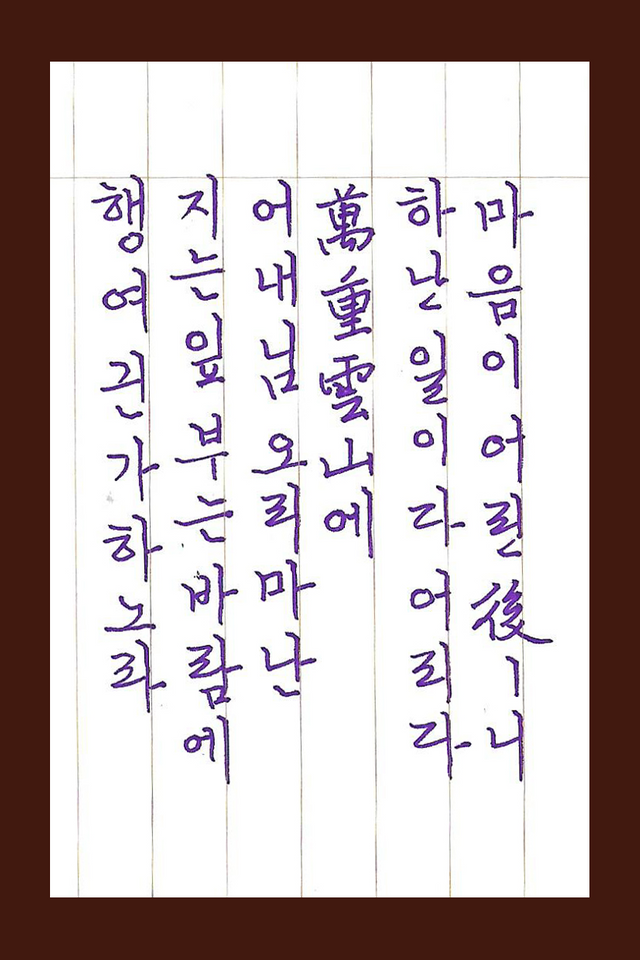 마음이 어린 後ㅣ니
하난 일이다 어리다
萬重雲山에
어내 님 오리마난
지는 잎 부는 바람에
행여 긘가 하노라